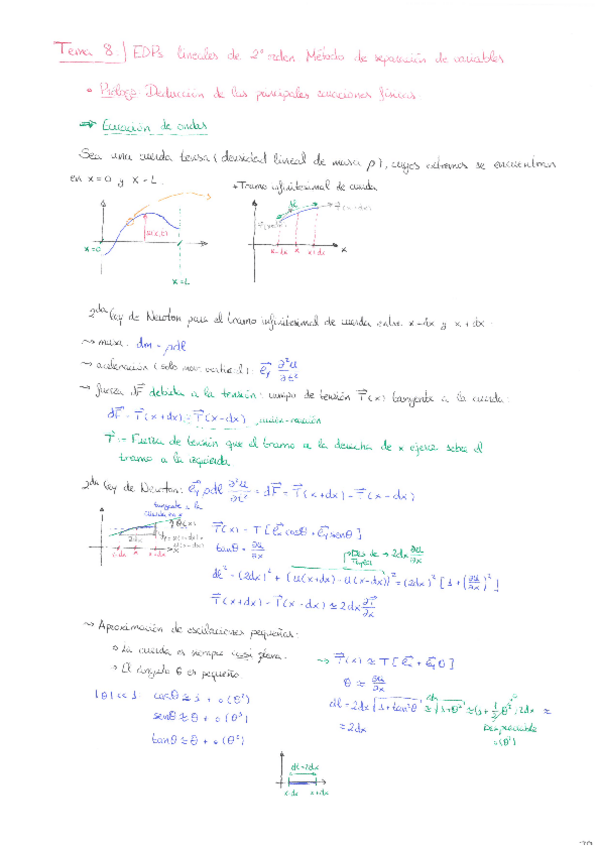 Tema 8: EDPs lineales de 2º orden. Método de separación de variables
• Prólogo: Deducción de las principales ecuaciones físicas
⇒ Ecuación de ondas
Sea una cuerda tensa (densidad lineal de masa ρ), cuyos extremos se encuentran
en x=0 y x=L.
→ Tramo infinitesimal de cuerda
u(x,t)
x=0
x=L
x-dx x x+dx
x
2da ley de Newton para el tramo infinitesimal de cuerda entre x-dx y x+dx:
→ masa: dm = ρdl
→ aceleración (solo mov. vertical): e⃗y ∂²u/∂t²
→ fuerza dF⃗ debida a la tensión: campo de tensión T⃗(x) tangente a la cuerda:
dF⃗ = T⃗(x+dx) - T⃗(x-dx) acción-reacción
T⃗ := Fuerza de tensión que el tramo a la derecha de x ejerce sobre el
tramo a la izquierda.
2da ley de Newton: e⃗y ρdl ∂²u/∂t² = dF⃗ = T⃗(x+dx) - T⃗(x-dx)
tangente a la
cuerda en x
2dx
x-dx x x+dx
T⃗(x) = T[e⃗x cosθ + e⃗y senθ]
tanθ = ∂u/∂x
Taylor → 2dx ∂u/∂x
dl² = (2dx)² + (u(x+dx) - u(x-dx))² = (2dx)² [1 + (∂u/∂x)²]
T⃗(x+dx) - T⃗(x-dx) ≈ 2dx ∂T⃗/∂x
→ Aproximación de oscilaciones pequeñas:
• La cuerda es siempre casi plana.
• El ángulo θ es pequeño.
→ T⃗(x) ≈ T[e⃗x + e⃗y θ]
θ ≈ ∂u/∂x
|θ| << 1 cosθ ≈ 1 + o(θ²)
senθ ≈ θ + o(θ³)
tanθ ≈ θ + o(θ²)
dl = 2dx √(1+tan²θ) ≈ √(1+θ²) ≈ (1+½θ²) 2dx ≈
≈ 2dx
Despreciable
o(θ²)
dl≈2dx
x-dx x+dx